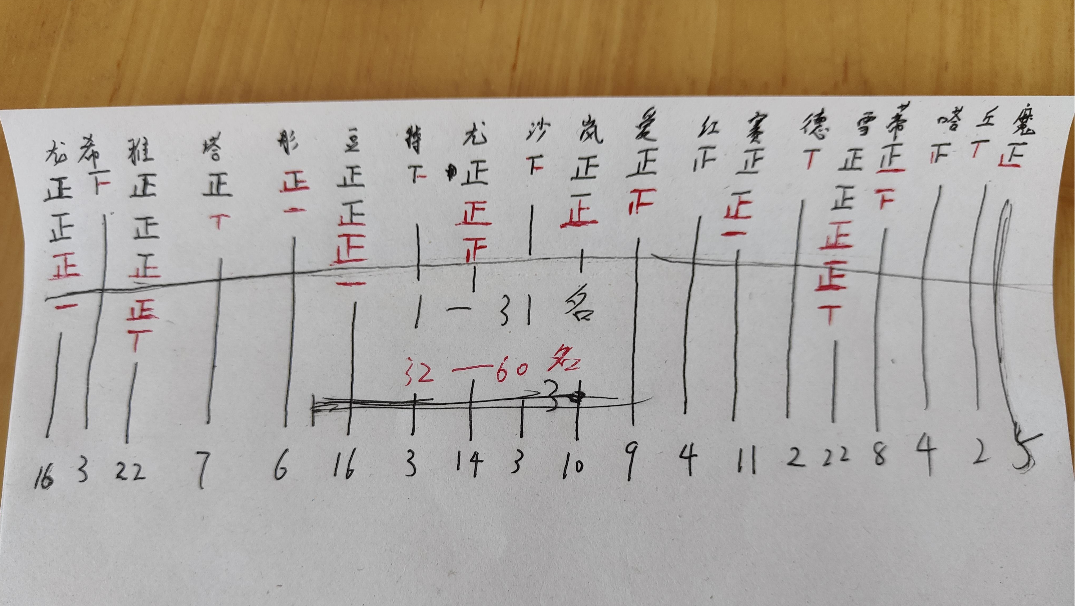 龙 希 雅 塔 彤 豆 特 尤 沙 岚 爱 红 赛 德 雪 蒂 嗒 丘 魔
正 下 正 正 正 正 下 正 下 正 正 正 正 丅 正 正 正 丅 正
正 正 丅 一 正 正 正 正 正 正 下
正 正 正 正 一 正
一 正 一 正
丅 丅
1 — 31 名
32 — 60 名
3
16 3 22 7 6 16 3 14 3 10 9 4 11 2 22 8 4 2 5